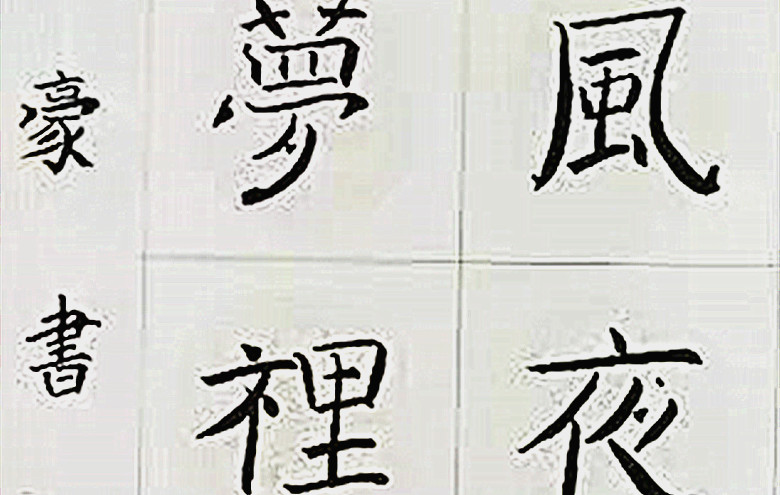 風夜
夢裡
豪書